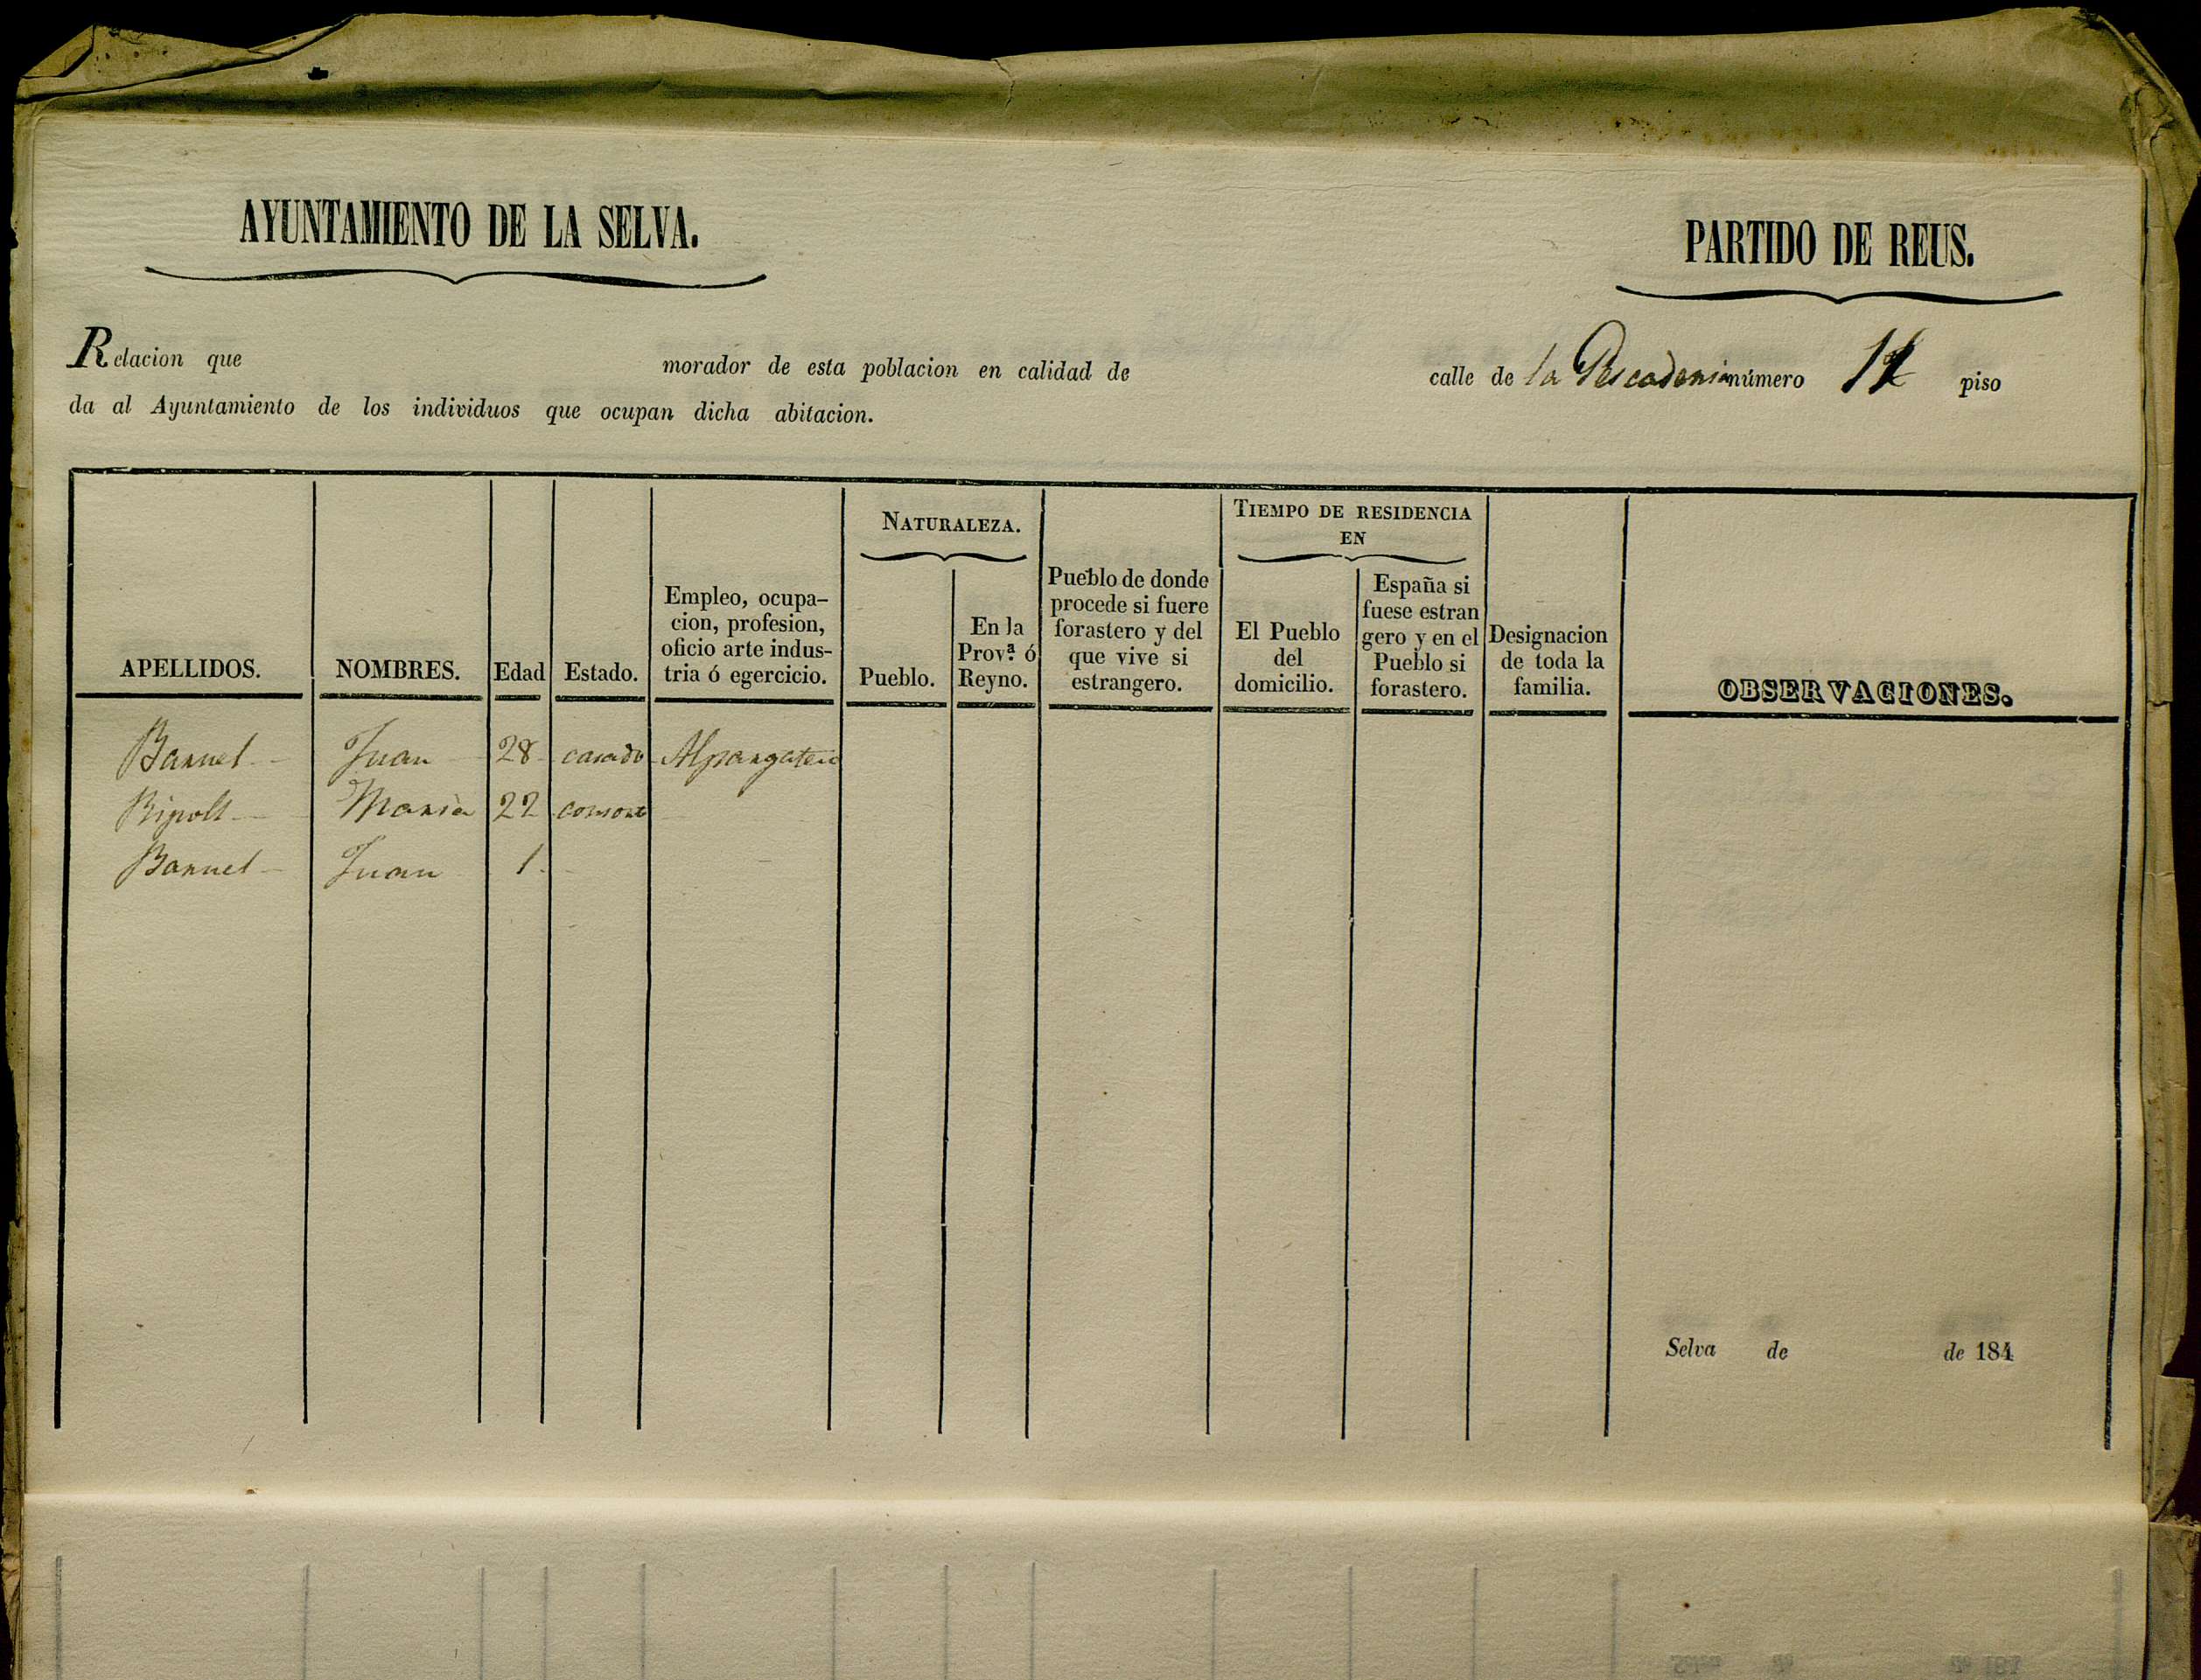 AYUNTAMIENTO DE LA SELVA.
PARTIDO DE REUS.
Relacion que morador de esta poblacion en calidad de calle de la Pescaderia número piso
da al Ayuntamiento de los individuos que ocupan dicha abitacion.
NATURALEZA.
TIEMPO DE RESIDENCIA
EN
APELLIDOS.
NOMBRES.
Edad
Estado.
Empleo, ocupa-
cion, profesion,
oficio arte indus-
tria ó egercicio.
Pueblo.
En la
Prov.ª ó
Reyno.
Pueblo de donde
procede si fuere
forastero y del
que vive si
estrangero.
El Pueblo
del
domicilio.
España si
fuese estran
gero y en el
Pueblo si
forastero.
Designacion
de toda la
familia.
OBSERVACIONES.
Barruel Juan 28 casado Alpargatero
Ripoll Maria 22 consorte
Barruel Juan 1
Selva de de 184